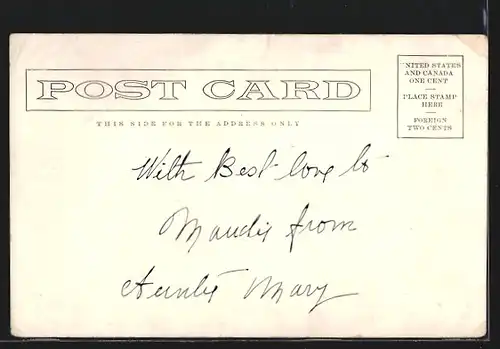 POST CARD
THIS SIDE FOR THE ADDRESS ONLY
UNITED STATES
AND CANADA
ONE CENT
PLACE STAMP
HERE
FOREIGN
TWO CENTS
With Best love to
Maudie from
Auntie Mary